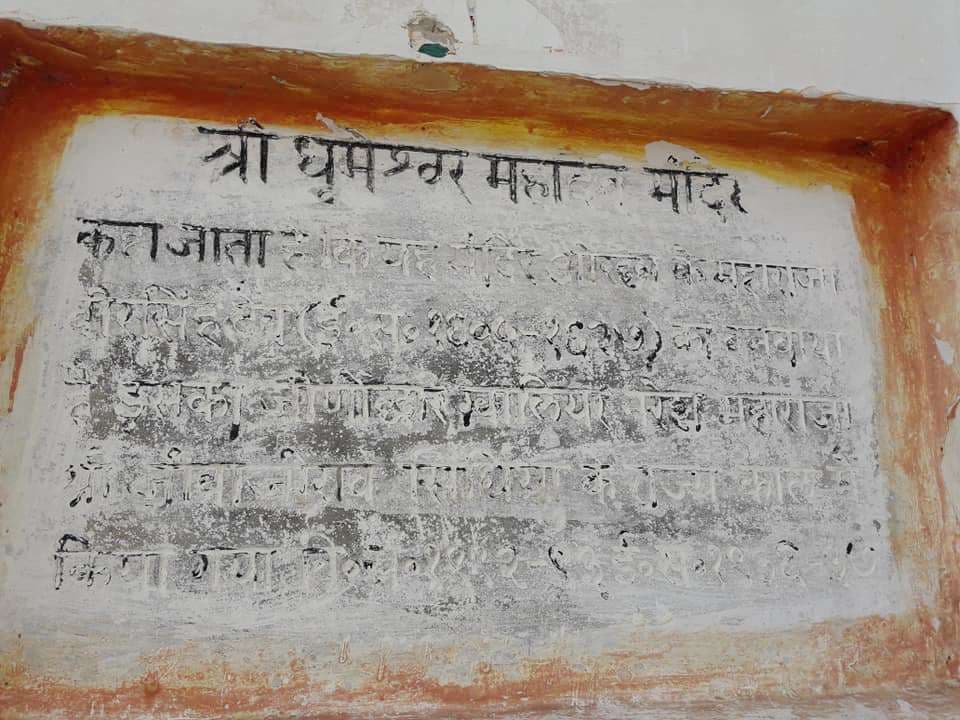 श्री धूमेश्वर महादेव मंदिर
कहा जाता है कि यह मंदिर ओरछा के महाराजा
वीरसिंह देव (ई॰स॰ १६०५-१६२७) का बनवाया
है इसका जीर्णोद्धार ग्वालियर नरेश महाराजा
श्री जीवाजीराव सिंधिया के राज्य काल में
किया गया वि॰स॰ ई॰स॰